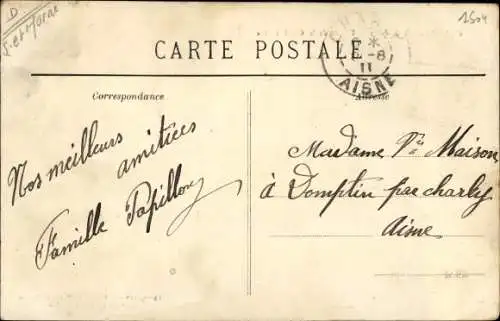 D.
S. et Marne
1504
CARTE POSTALE
AISNE
11
Correspondance
Adresse
Nos meilleurs
amitiées
Famille Papillon
Madame Vve Maison
à Domptin par charly
Aisne